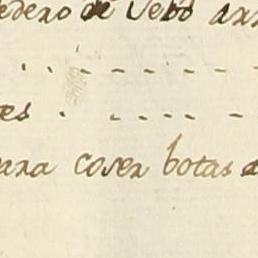 edero de Vebo
es . - - - - -
para coser botas